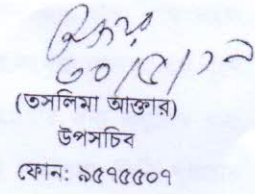 ৩০/৫/১৭
(তসলিমা আক্তার)
উপসচিব
ফোন: ৯৫৭৫৫০৭